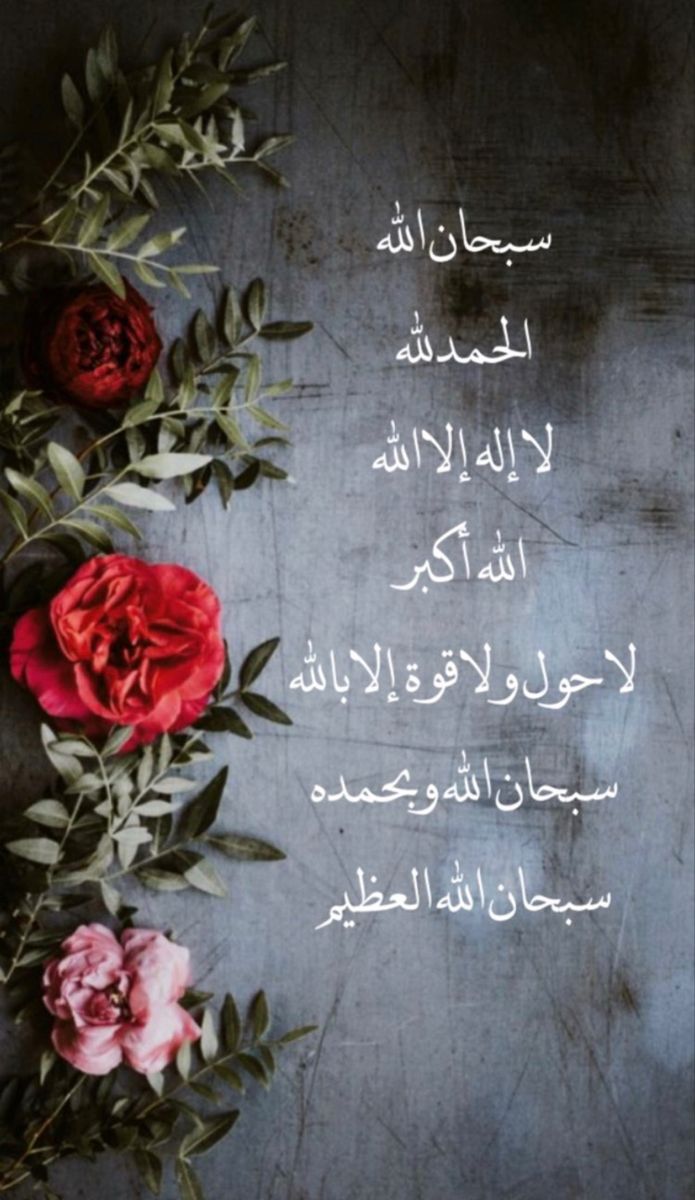 سبحان الله
الحمد لله
لا إله إلا الله
الله أكبر
لا حول ولا قوة إلا بالله
سبحان الله وبحمده
سبحان الله العظيم